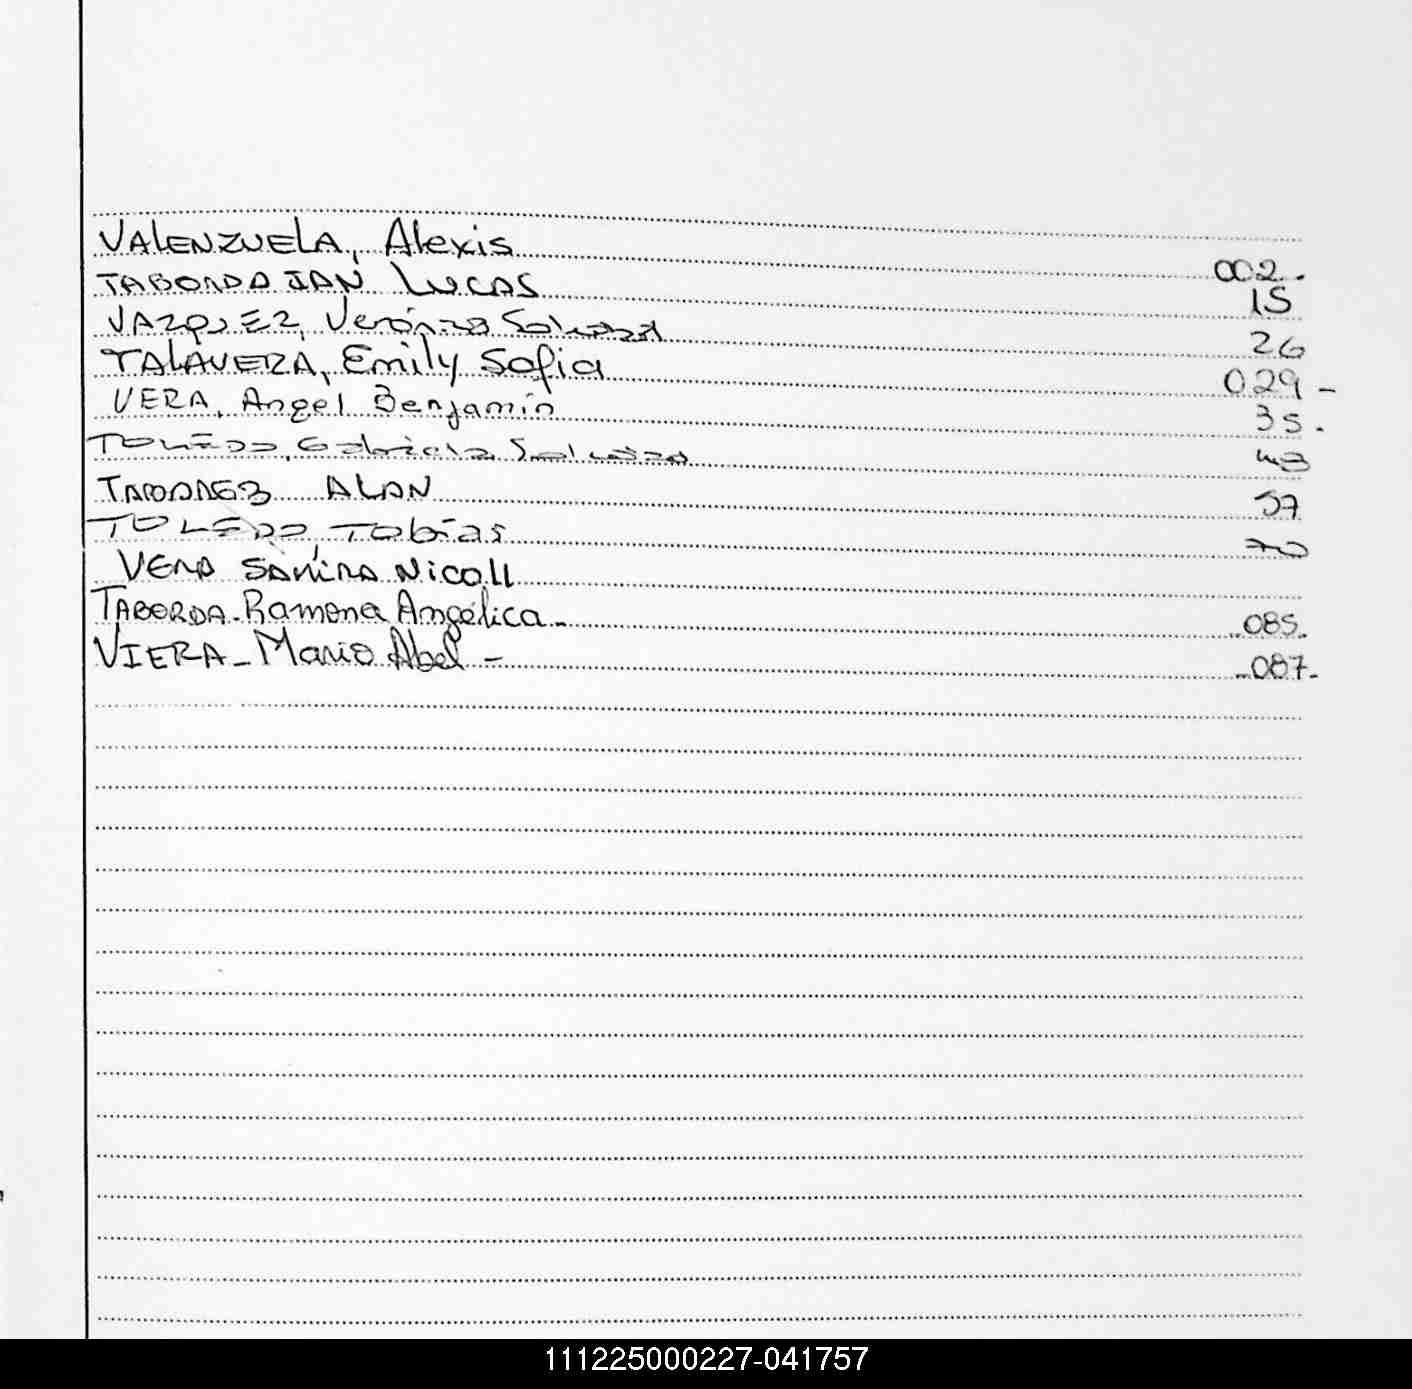 VALENZUELA, Alexis 002.
TABORDA IAN LUCAS 15
VAZQUEZ, Verónica Soledad 26
TALAVERA, Emily Sofia 029 -
VERA, Angel Benjamin 35.
TOLEDO, Gabriela Soledad 43
TABAREZ ALAN 57
TOLEDO, Tobías 70
VERA SAMIRA NICOLL
TABORDA - Ramona Angélica - 085.
VIERA - Mario Abel - 087-
111225000227-041757